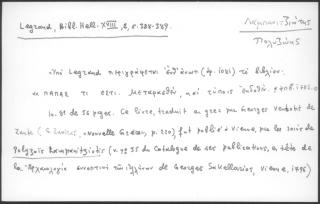 Legrand, Bibl. Hell. XVIII, 2, σ. 388-389.
Λαμπανιτζιώτης
Πολυζώης
Ὁ Legrand περιγράφεται (ἀρ. 1081) τὸ βιβλίον:
« ΠΑΠΑΣ ΤΙ ΕΣΤΙ. Μεταφρασθὲν καὶ τύποις ἐκδοθέν.
In-8° de 56 pages. Ce livre, traduit en grec par Georges Vendoti de
Zante (Zaviras, nouvelle Grèce, p. 220) fut publié à Vienne, par les soins de
Polyzois Lampanitziotis (v. n° 35 du catalogue de ses publications, en tête de
la Ἀρχαιολογία συνοπτικὴ τῶν Ἑλλήνων de Georges Sakellarios, Vienne, 1796)